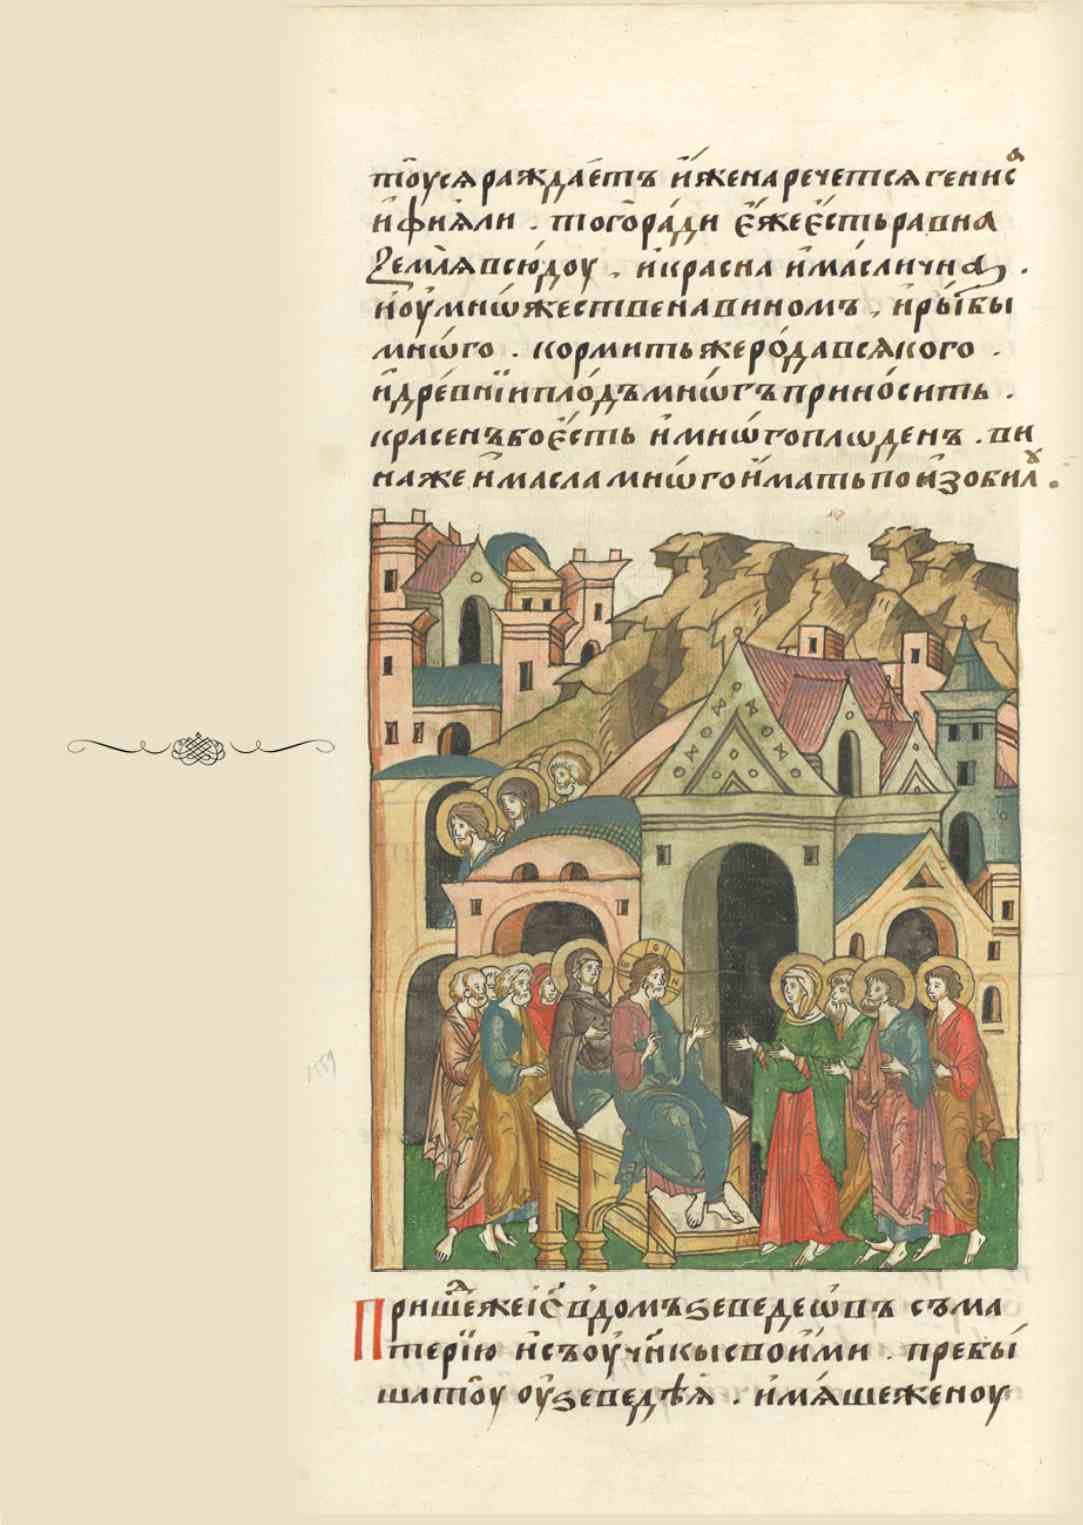 тоу ся раждаетъ и иже наречется генис
а
и фияли . того ради еже есть равна
земля всюдоу , и красна и маслична .
и оумножественна вином , и рыбы
мнѡго . кормить же рода всякого .
и древнїи плодъ мнѡгъ приносить .
красенъ бо есть и мнѡгоплѡденъ . ви
на же и масла мнѡго имать по изобил .
Пришеⷣ же іс҃ в домъ ѕеведеѡвъ съ ма
терїю и съ оучн҃кы своими . пребы
ша тоу оу ѕеведѣя . имяше же ноу